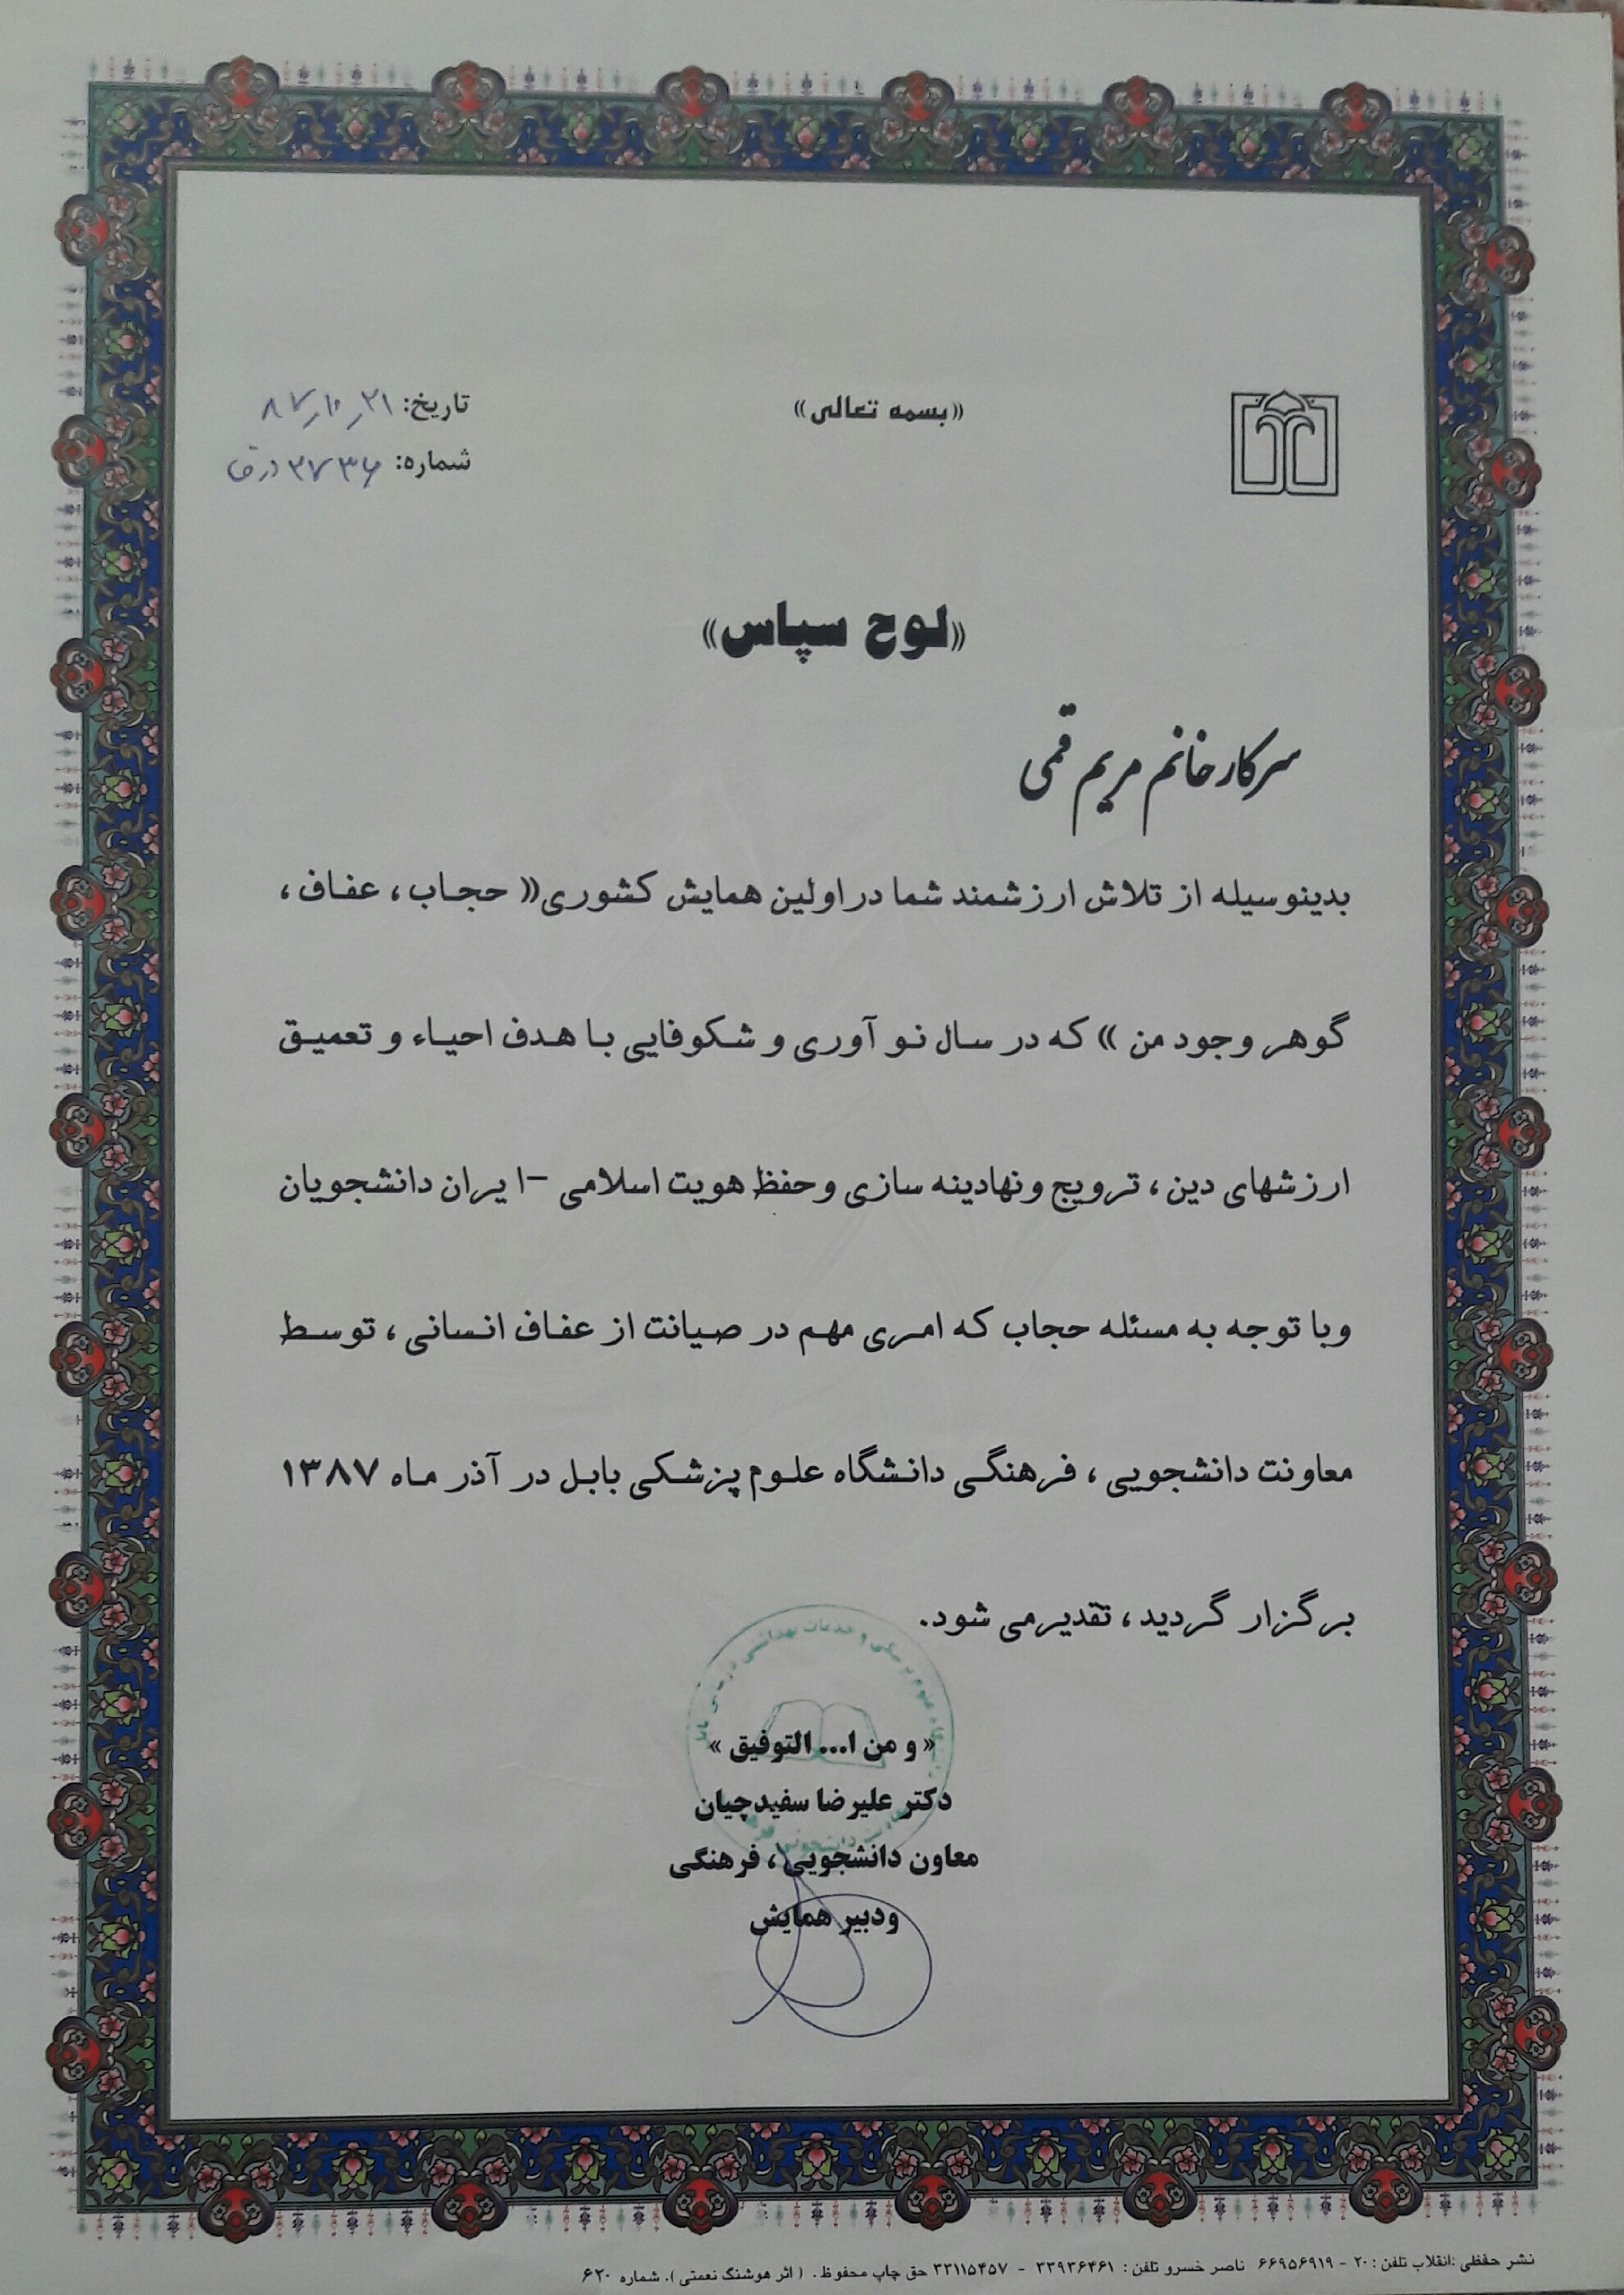 «بسمه تعالی»
تاریخ: ۸۷/۱۰/۲۱
شماره: ۲۷۳۶
«لوح سپاس»
سرکار خانم مریم قمی
بدینوسیله از تلاش ارزشمند شما در اولین همایش کشوری« حجاب ، عفاف ،
گوهر وجود من » که در سال نو آوری و شکوفایی با هدف احیاء و تعمیق
ارزشهای دین ، ترویج ونهادینه سازی وحفظ هویت اسلامی –ایران دانشجویان
وبا توجه به مسئله حجاب که امری مهم در صیانت از عفاف انسانی ، توسط
معاونت دانشجویی ، فرهنگی دانشگاه علوم پزشکی بابل در آذر ماه ۱۳۸۷
برگزار گردید ، تقدیرمی شود.
علوم پزشکی و خدمات بهداشتی درمانی
« و من ا... التوفیق »
دکتر علیرضا سفیدچیان
معاون دانشجویی ، فرهنگی
ودبیر همایش
نشر حفظی :انقلاب تلفن : ۲۰ - ۶۶۹۵۶۹۱۹ ناصر خسرو تلفن : ۳۳۹۳۶۴۶۱ - ۳۳۱۱۵۴۵۷ حق چاپ محفوظ . ( اثر هوشنگ نعمتی ). شماره ۶۲۰